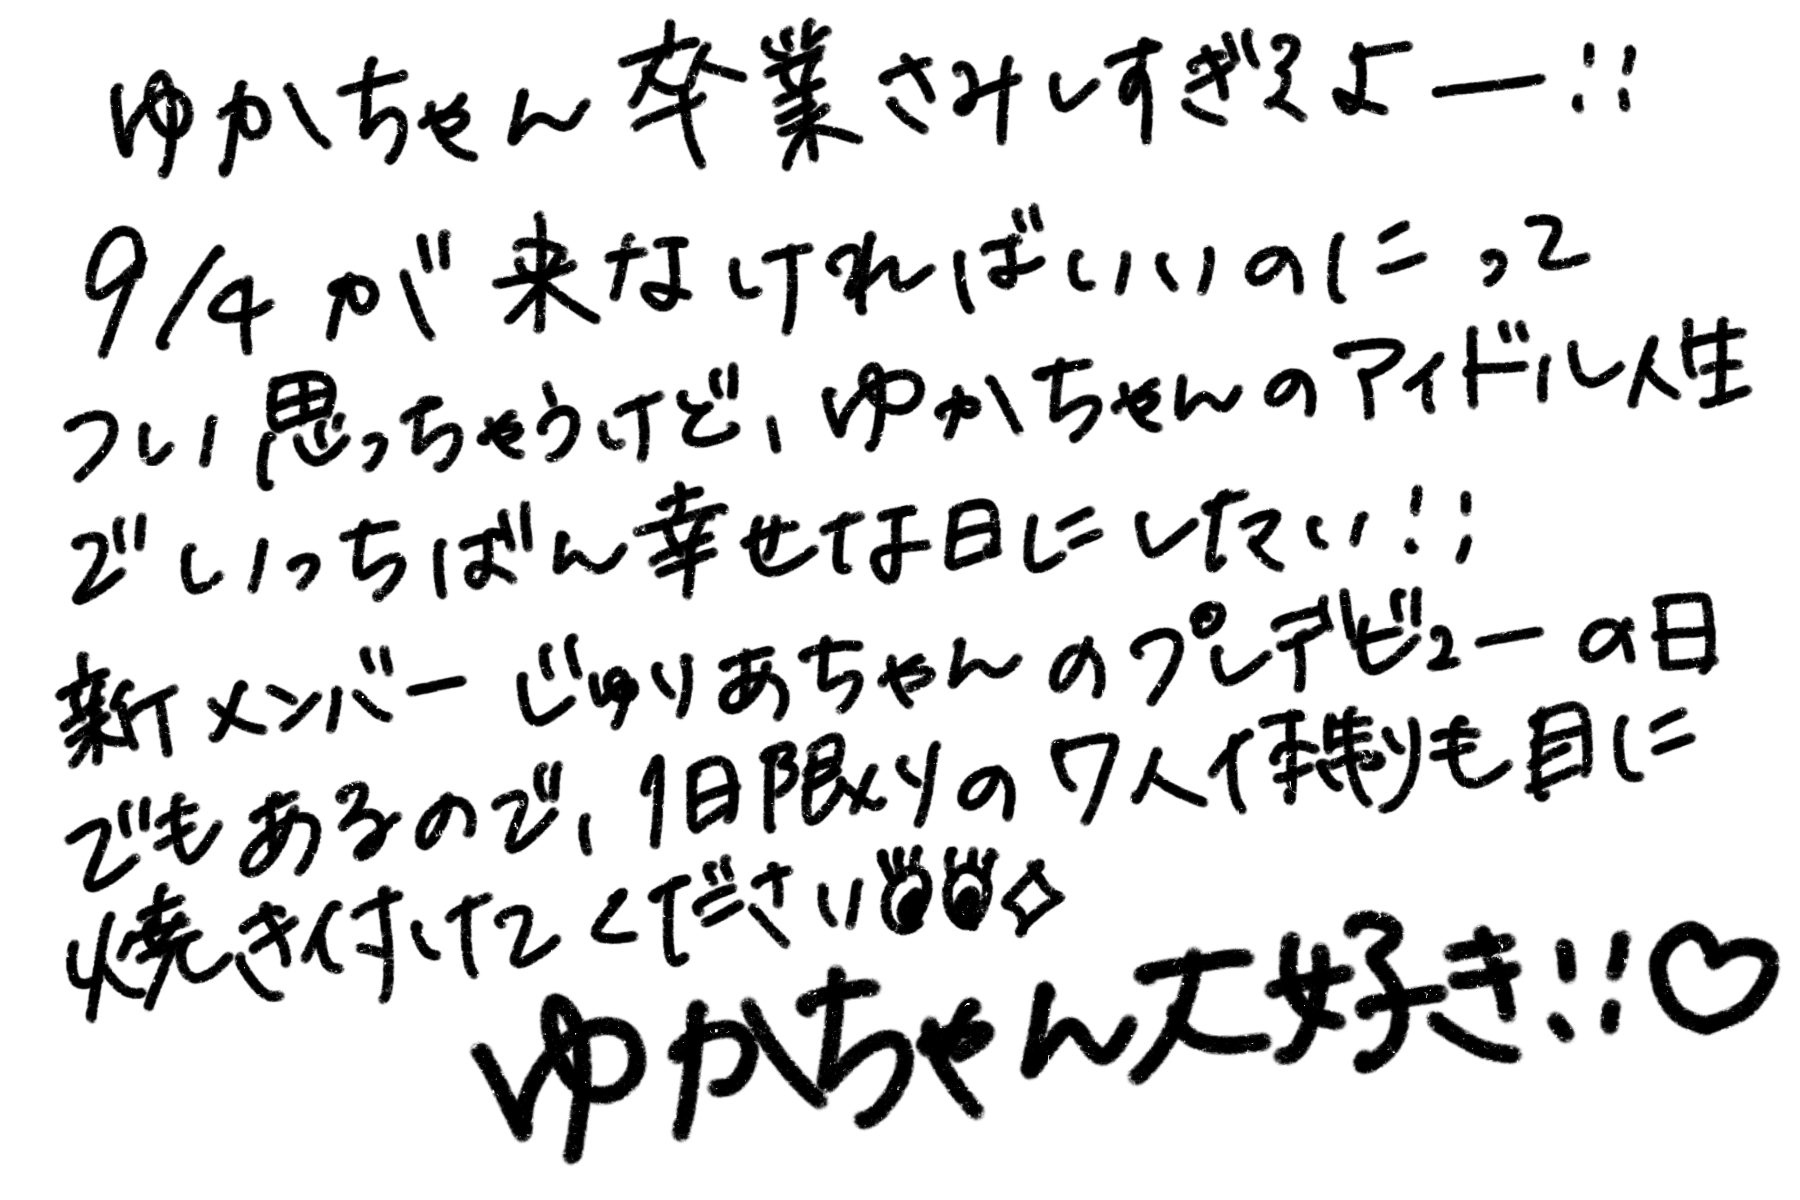 ゆかちゃん卒業さみしすぎるよー!!
9/4が来なければいいのにって
つい思っちゃうけど、ゆかちゃんのアイドル人生
でいっちばん幸せな日にしたい!!
新メンバーじゅりあちゃんのプレデビューの日
でもあるので、1日限りの7人体制も目に
焼き付けてください
ゆかちゃん大好き!!♡